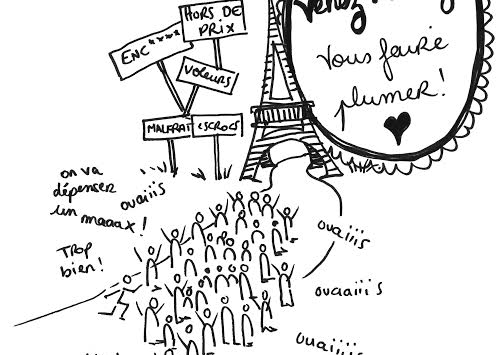 HORS DE
PRIX
ENC****
VOLEURS
MALFRAT
ESCROCS
Venez
vous faire
plumer!
on va
dépenser
un maaax!
ouaiiis
TROP
bien!
ouaiiis
ouaaiiis
ouaiiiis